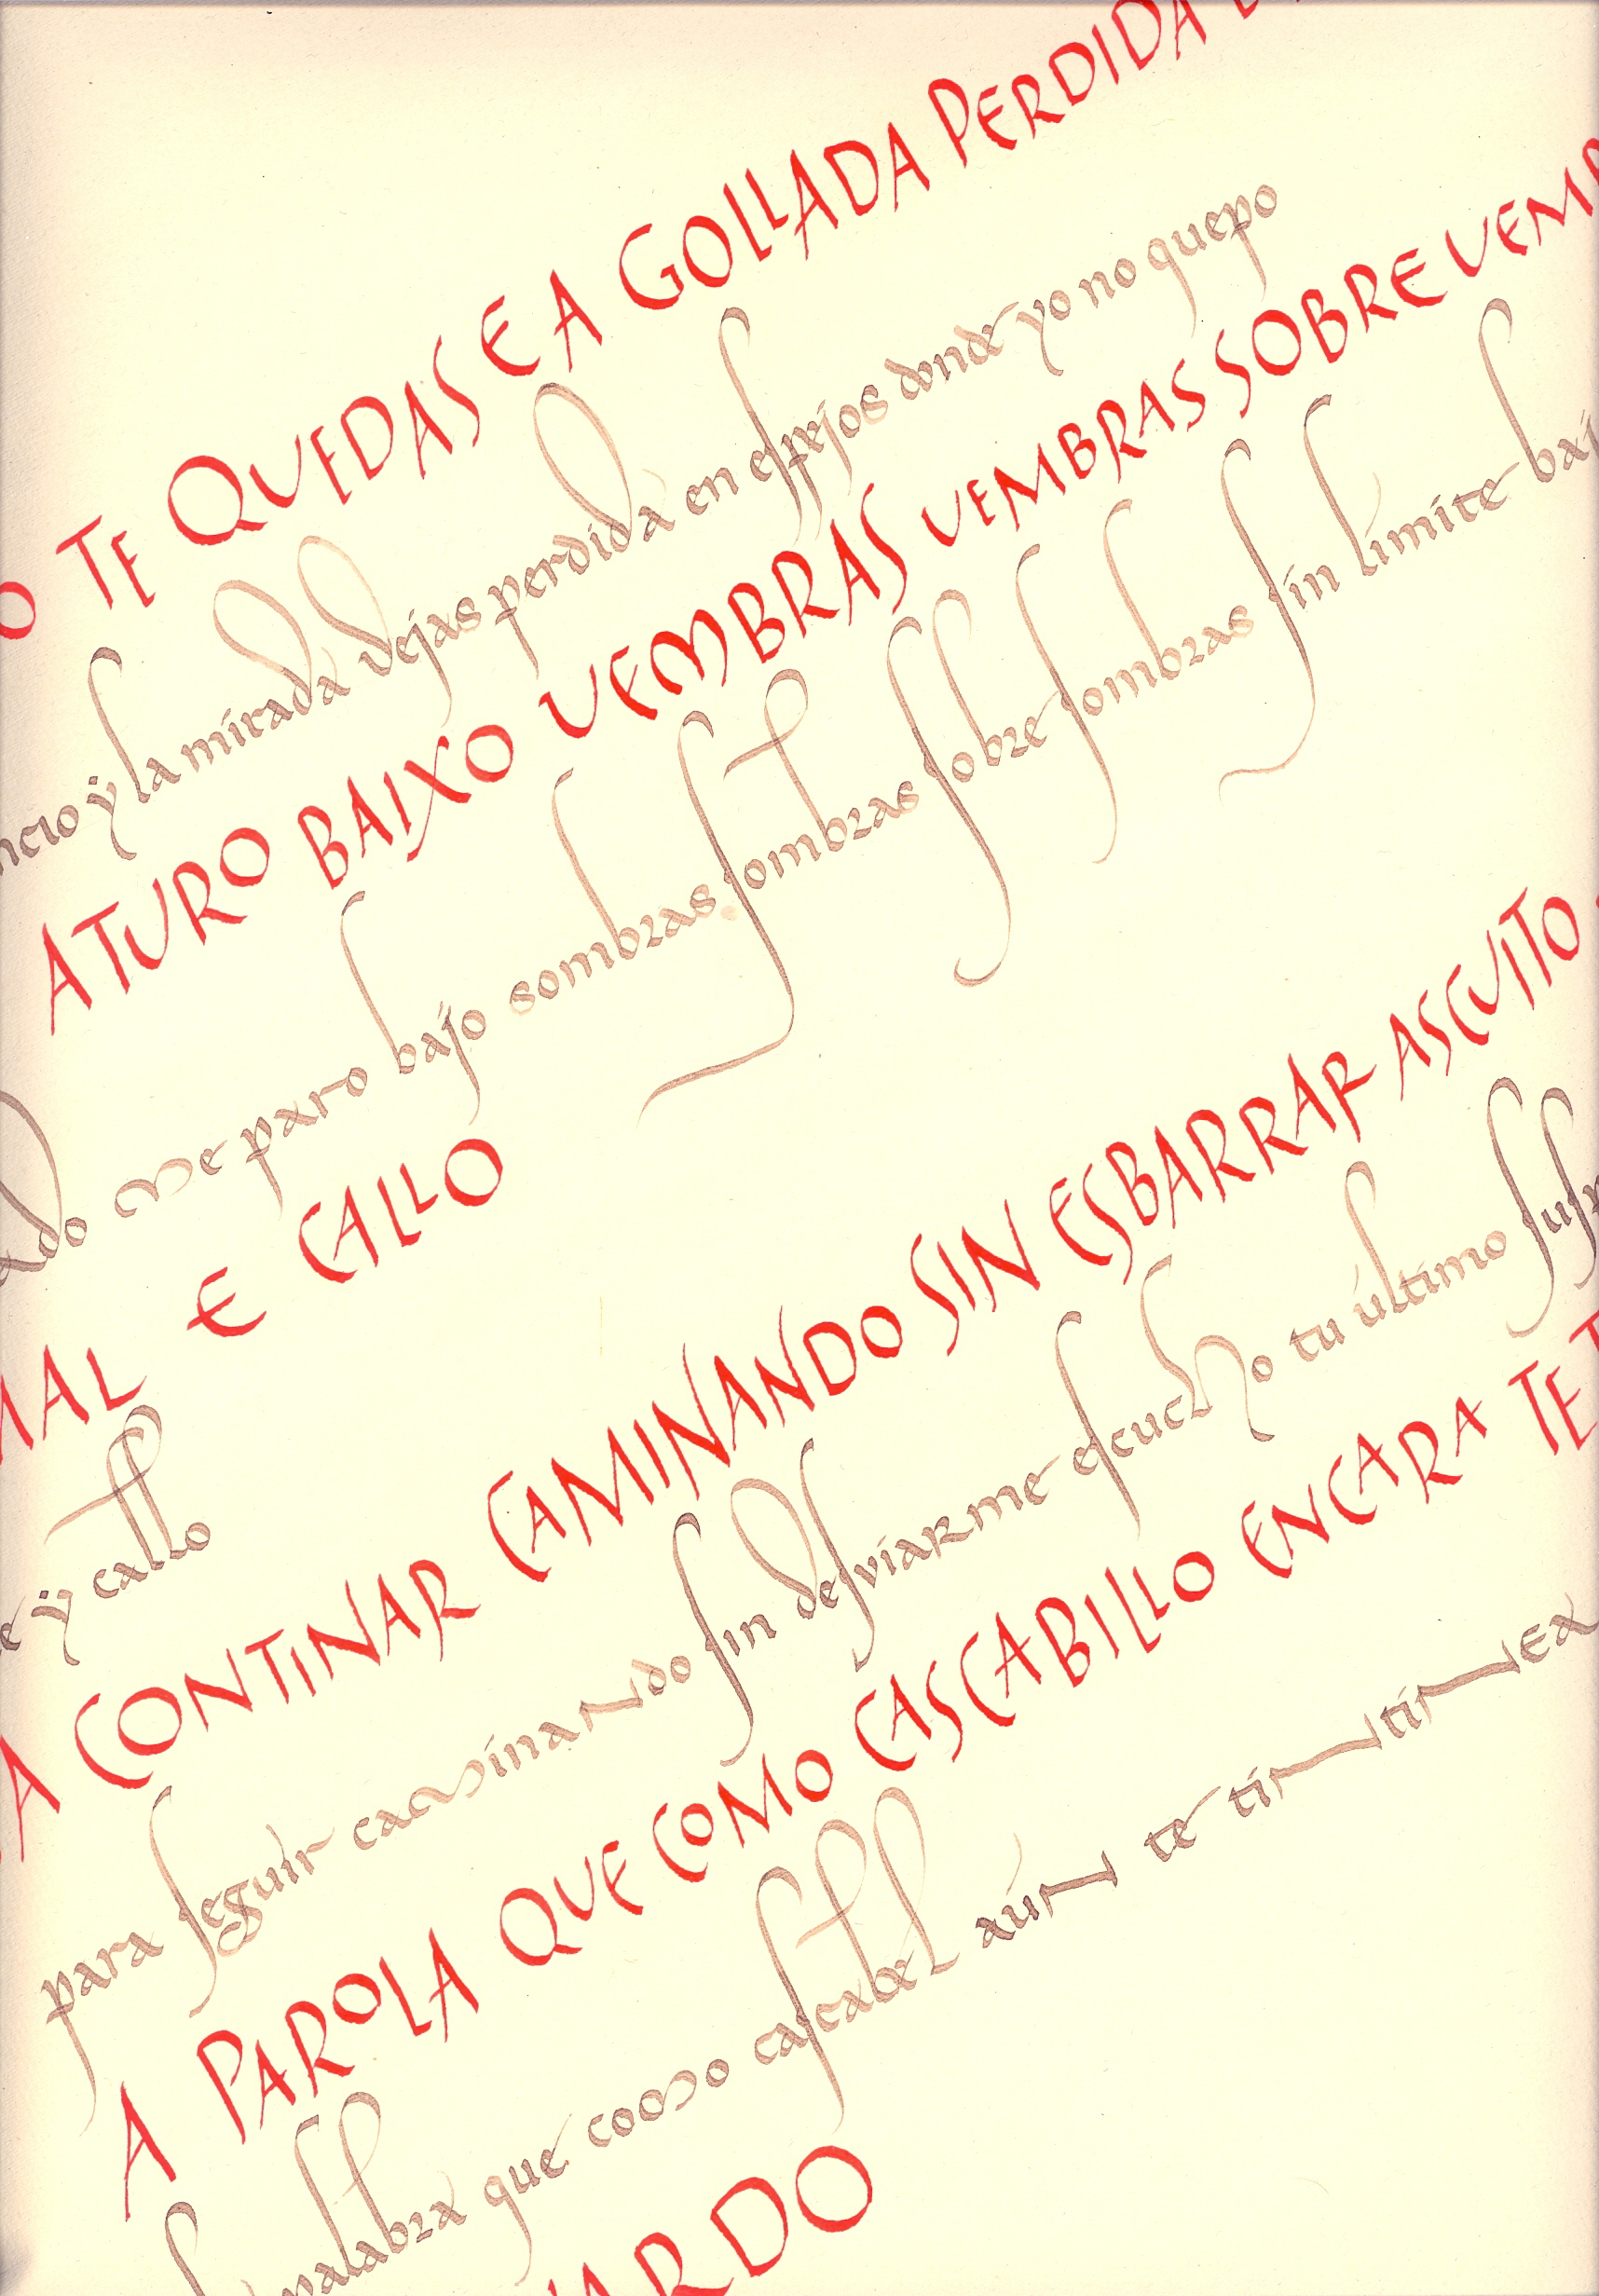 O TE QUEDAS E A GOLLADA PERDIDA
ncio ÿ la mirada dejas perdida en espejos donde yo no quepo
ATURO BAIXO UEMBRAS UEMBRAS SOBRE UEMB
ado me paro bajo sombras sombras sobre sombras sin límite baj
MAL E CALLO
e ÿ callo
A CONTINAR CAMINANDO SIN ESBARRAR ASCUITO
para seguir caminando sin desviarme escucho tu último susp
A PAROLA QUE COMO CASCABILLO ENCARA TE T
palabra que como cascabel aún te tintinea
ARDO